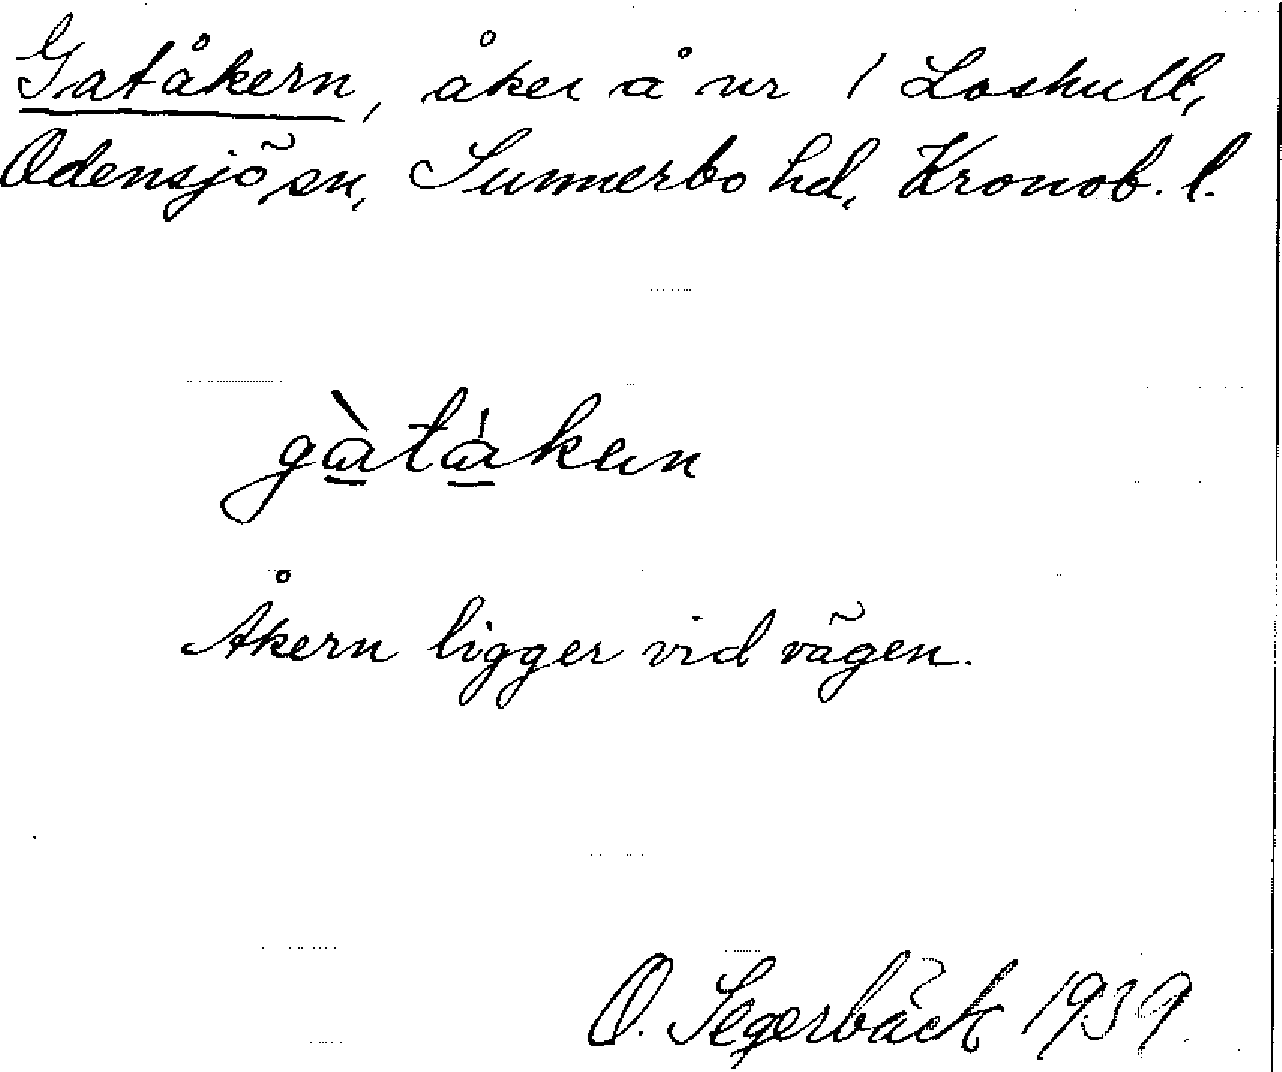 Gatåkern, åker å nr 1 Loshult,
Odensjö sn, Sunnerbo hd, Kronob. l.
gàtåkeɹn
Åkern ligger vid vägen.
O. Segerbäck 1939.